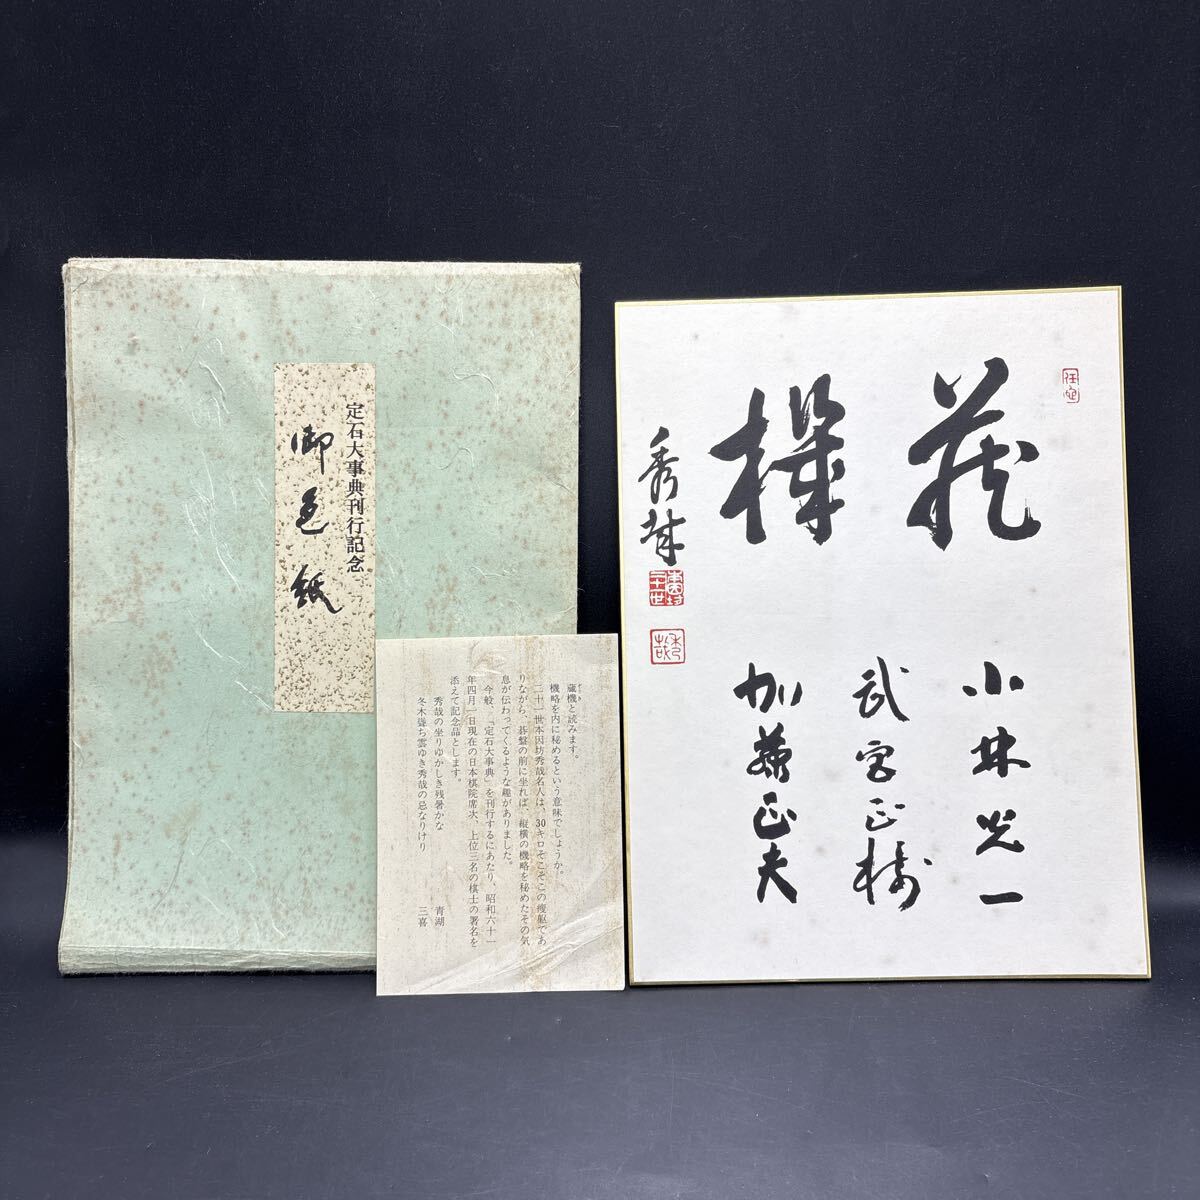 定石大事典刊行記念
御色紙
蔵機と読みます。
機略を内に秘めるという意味でしょうか。
二十一世本因坊秀哉名人は、30キロそこそこの痩躯であ
りながら、碁盤の前に坐れば、縦横の機略を秘めたその気
息が伝わってくるような趣がありました。
今般、「定石大事典」を刊行するにあたり、昭和六十一
年四月一日現在の日本棋院席次、上位三名の棋士の署名を
添えて記念品とします。
秀哉の坐りゆかしき残暑かな 青湖
冬木聳ち雲ゆき秀哉の忌なりけり 三喜
蔵機
秀哉
小林光一
武宮正樹
加藤正夫